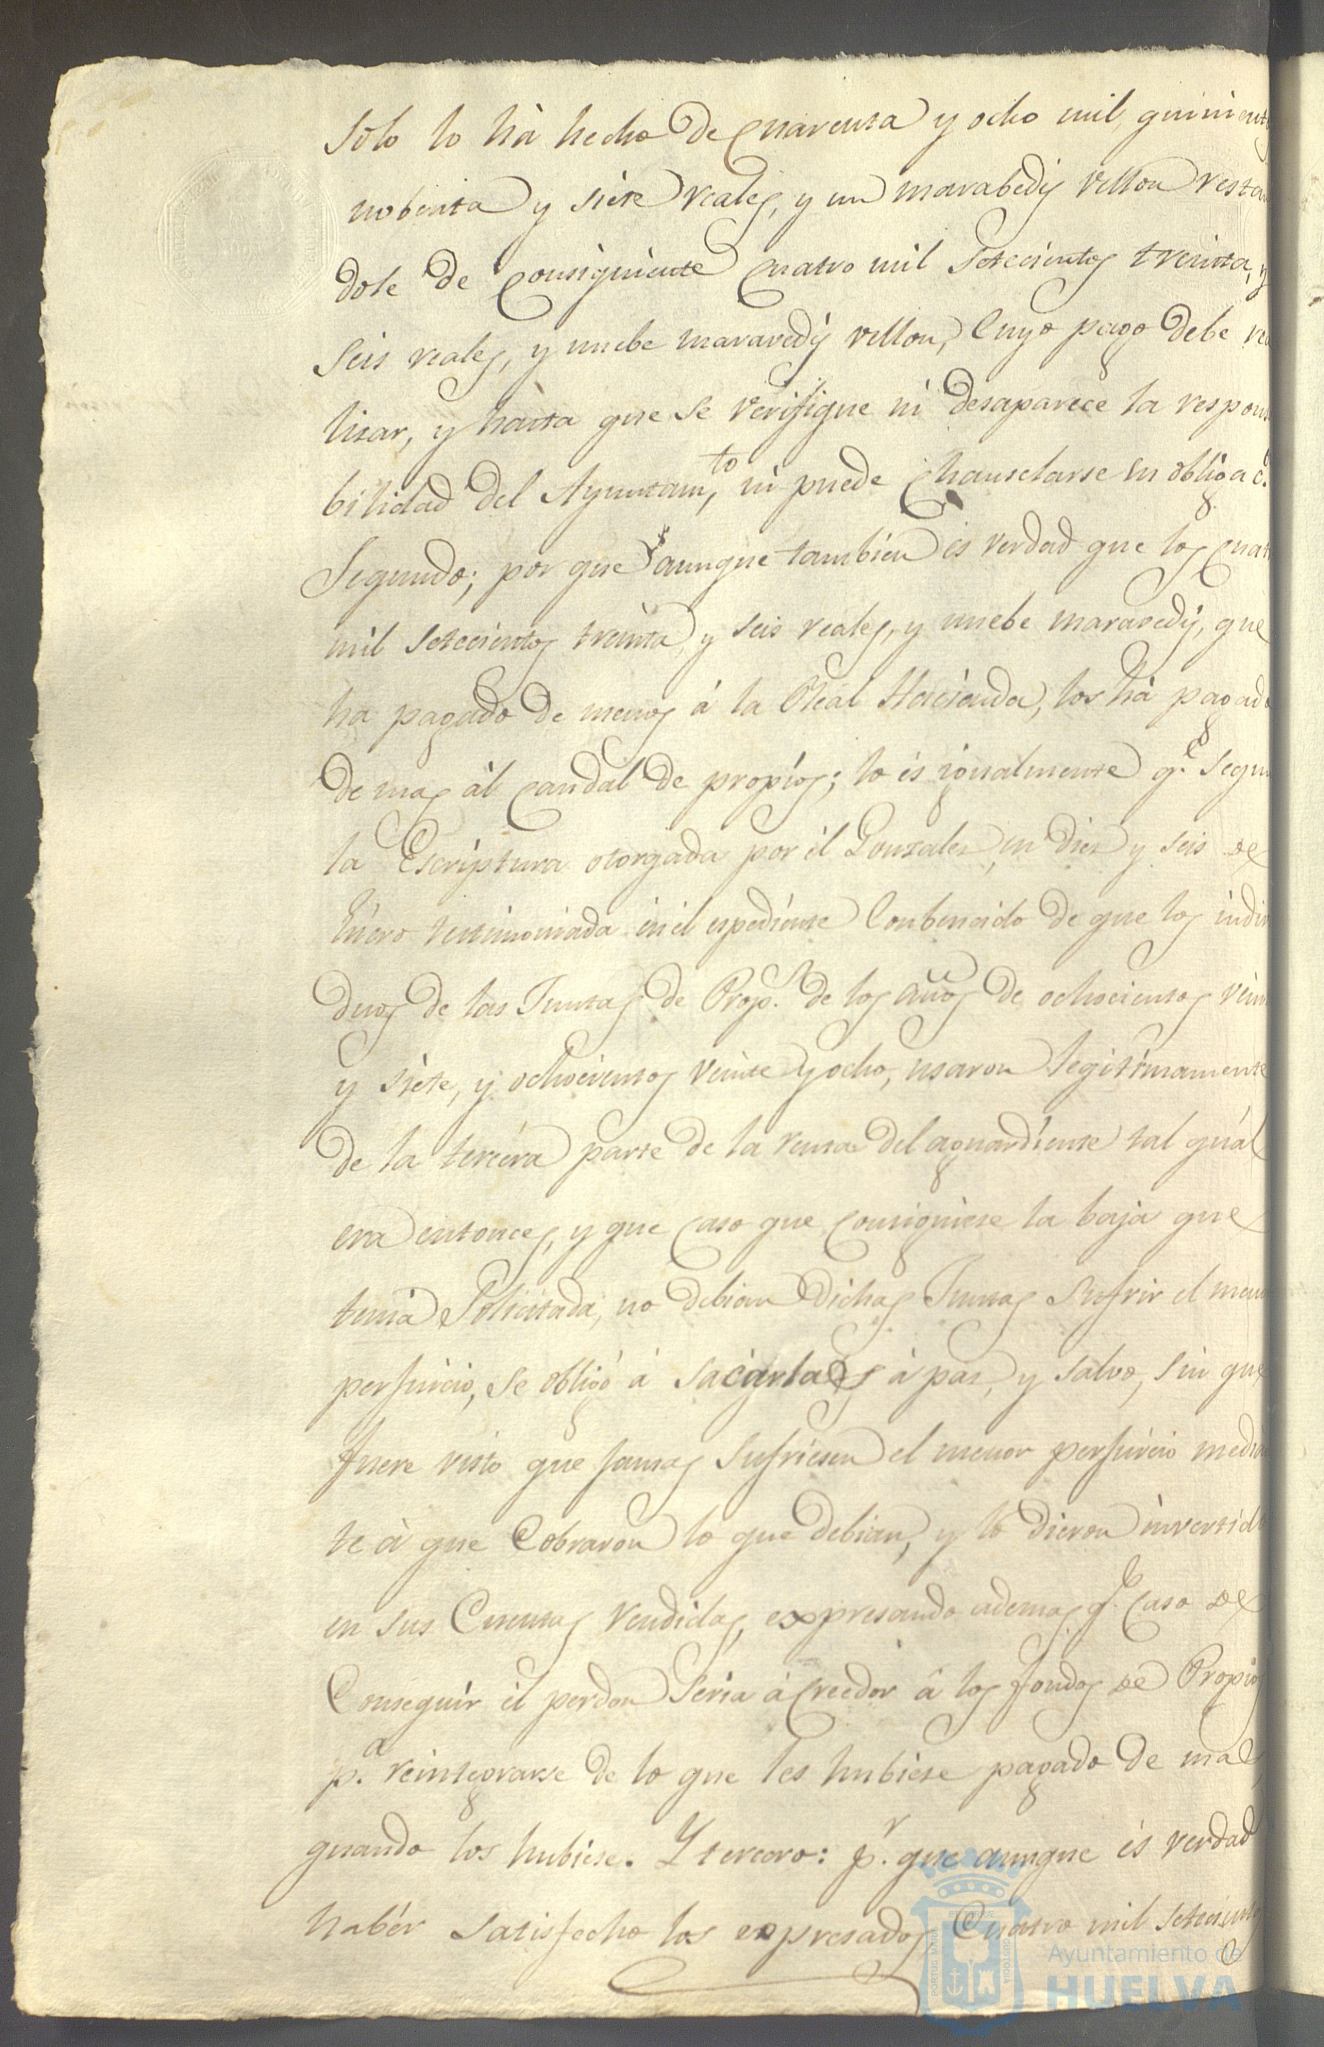 solo lo hà hecho de quarenta y ocho mil quinient
nobenta y siete reales, y un marabedis vellon resta
dole de consiguiente quatro mil setecientos treinta, y
seis reales, y nuebe maravedis vellon, cuyo pago debe rea
lisar, y hasta que se verifique ni desaparece la respons
bilidad del Ayuntam.to, ni puede chanselarse su obligac.
Segundo; por que aunque tambien es verdad que los quat
mil setecientos treinta y seis reales, y nuebe maravedis, que
ha pagado de menos á la Real Hacienda, los hà pagado
de mas àl caudal de propios; lo és igualmente q.e segun
la Escriptura otorgada por él Gonzales, en dies y seis de
Enero testimoniada en el espediente conbencido de que los indivi
duos de las Juntas de Prop.s de los años de ochocientos vein
y siete, y ochocientos veinte y ocho, usaron legitimamente
de la tercera parte de la renta del aguardiente tal qual
era entonces, y que caso que consiguiese la baja que
tenia solicitada, no debian dichas Juntas sufrir el menor
perjuicio, se obligó á sacarlas à paz, y salvo, sin que
fuere visto que jamas sufriesen el menor perjuicio media
te à que cobraron lo que debian, y lo dieron invertido
en sus Cuentas rendidas, expresando ademas q.e caso de
Conseguir el perdon seria acreedor â los fondos de Propios
p.a reintegrarse de lo que les hubiese pagado de mas,
quando los hubiese. Y tercero: p.r que aunque és verdad
habér satisfecho los expresados Cuatro mil setecientos
Ayuntamiento de
HUELVA